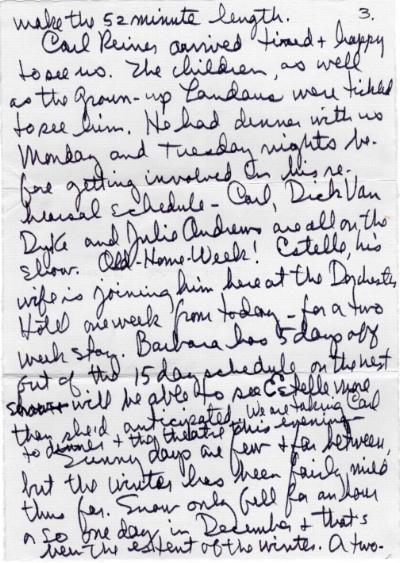 3.
make the 52 minute length.
Carl Reiner arrived tired + happy
to see us. The children, as well
as the grown-up Landaus were tickled
to see him. He had dinner with us
Monday and Tuesday nights be-
fore getting involved in his re-
hearsal schedule - Carl, Dick Van
Dyke and Julie Andrews are all on the
show. Old-Home-Week! Estelle, his
wife is joining him here at the Dorchester
Hotel one week from today - for a two
week stay. Barbara has 5 days off
out of the 15 day schedule on the next
will be able to see Estelle more
than she'd anticipated. We are taking Carl
to dinner + the theatre this evening.
Sunny days are few + far between,
but the winter has been fairly mild
thus far. Snow only fell for an hour
or so one day in December + that's
been the extent of the winter. A two-